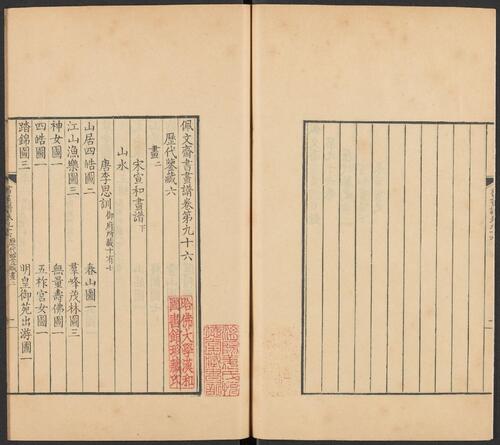 佩文齋書畫譜卷第九十六
歷代鑒藏六
畫二
宋宣和畫譜下
山水
唐李思訓 御府所藏十有七
山居四皓圖二 春山圖一
江山漁樂圖三 羣峰茂林圖三
神女圖一 無量壽佛圖一
四皓圖一 五柞宮女圖一
踏錦圖三 明皇御苑出游圖一
哈佛大學漢和
圖書館珍藏印